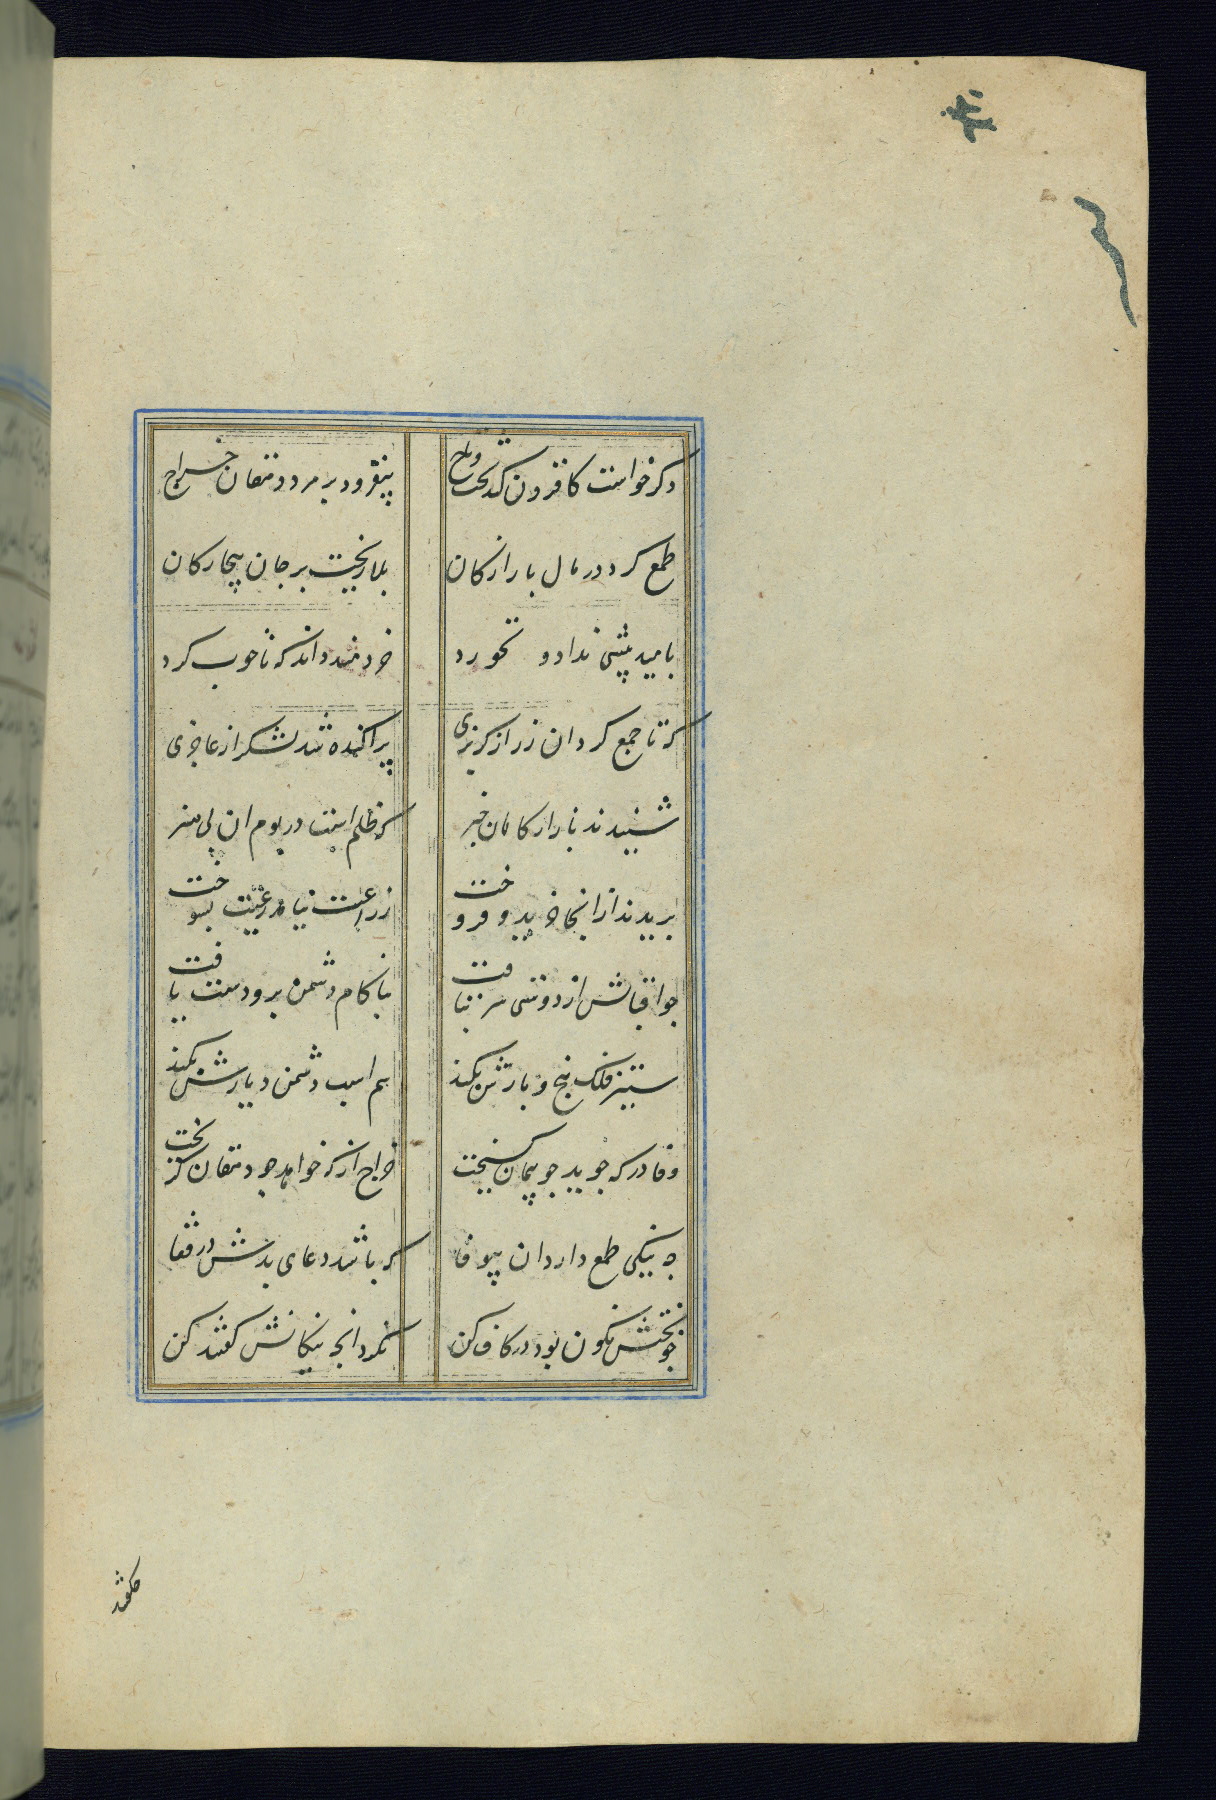 دکر خواست کافزون کند تخت و تاج
بیفزود بر مرد دهقان خراج
طمع کرد در مال بازارکان
بلا ریخت بر جان بیچارکان
بامید بیشی نداد و نخورد
خردمند داند که ناخوب کرد
که تا جمع کرد ان زر از کربزی
پراکنده شد لشکر از عاجزی
شنیدند بازارکانان خبر
که ظلم است در بوم ان بی هنر
بریدند از انجا خرید و فروخت
زراعت نیامد رعیت بسوخت
چو اقبالش از دوستی سر بتافت
بناکام دشمن برو دست یافت
ستیز فلک بیخ و بارش بکند
سم اسب دشمن دیارش بکند
وفا در که جوید چو پیمان کسیخت
خراج از که خواهد چو دهقان کریخت
چه نیکی طمع دارد ان بیوفا
که باشد دعای بدش در قفا
چو بختش نکون بود در کاف کن
نکرد انچه نیکانش کفتند کن
چکفتند